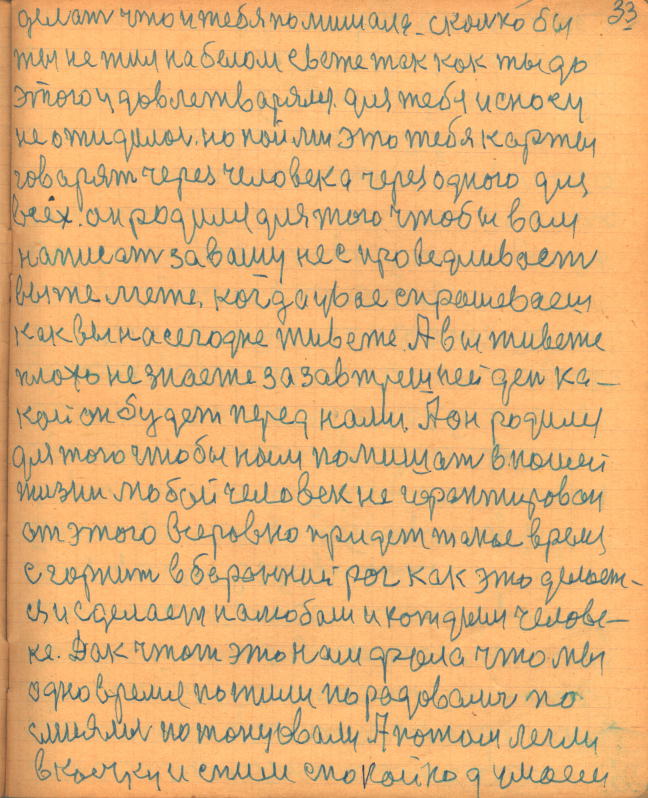 33
делат что и тебя помишала. сколко бы
ты не жил на белом свете так как ты до
этого удовлетварялся. для тебя и сноси
не ожидалос. но пойми это тебя карты
говарят через человека через одного для
всех. он родился для того чтобы вам
написат за вашу неспроведливаст
вы же лжете, когда увас спрашеваеш
как вы на сегодне живете. А вы живете
плохо не знаете за завтрешней ден ка-
кой он будет перед нами. А он родился
для того чтобы ным помишат в нашей
жизни любой человек не гарантирован
от этого всеровно придет такое время
сгорнит в баранний рог как это делает-
ся и сделает на любом и каждым челове-
ке. Дак чтож это нам дрола что мы
одно время пожили порадовалис по
смиялис потонцовали А потом легли
в коечку и спим спокойно думаем